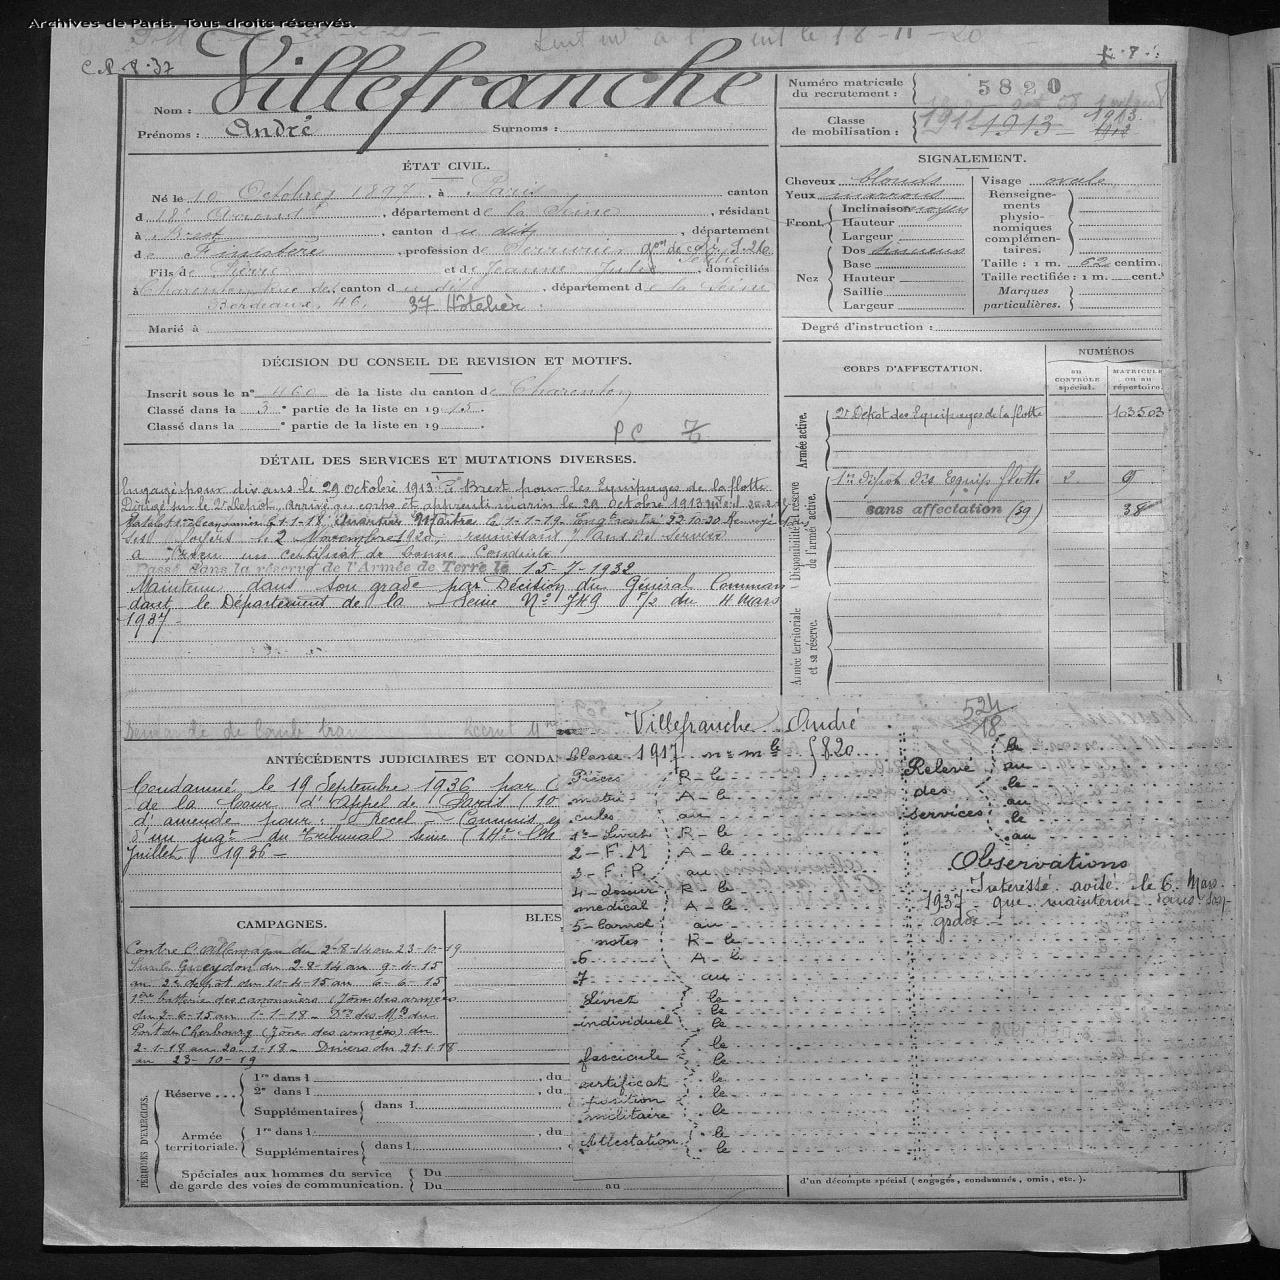 Archives de Paris. Tous droits réservés.
C.R.P. 37
Nom : Villefranche
Prénoms : André Surnoms :
Numéro matricule du recrutement : 5820
Classe de mobilisation : 1913
1913
ÉTAT CIVIL.
Né le 10 Octobre 1897, à Paris canton
d 18e Arrond, département de la Seine, résidant
à Brest, canton d u dit, département
d Finistère, profession de Serrurier
Fils de Pierre et de Jeanne Julie, domiciliés
à Charenton rue de, canton d u dit, département de la Seine
Bordeaux, 46. 37 Hôtelier
Marié à
SIGNALEMENT.
Cheveux blonds Visage ovale
Yeux marrons
Front Inclinaison moyen
Hauteur
Largeur
Nez Dos
Base
Hauteur
Saillie
Largeur
Renseignements physionomiques complémentaires.
Taille : 1 m. 62 centim.
Taille rectifiée : 1 m. cent.
Marques particulières.
Degré d'instruction :
DÉCISION DU CONSEIL DE REVISION ET MOTIFS.
Inscrit sous le n° 460 de la liste du canton de Charenton
Classé dans la 3e partie de la liste en 1915.
Classé dans la e partie de la liste en 19 .
P C
CORPS D'AFFECTATION.
NUMÉROS
au contrôle spécial.
MATRICULE ou au répertoire.
Armée active.
2e Dépôt des Equipages de la flotte 103503
Disponibilité et réserve de l'armée active.
1er Dépôt des Equip flotte
sans affectation (sg) 38
Armée territoriale et sa réserve.
DÉTAIL DES SERVICES ET MUTATIONS DIVERSES.
Engagé pour dix ans le 29 Octobre 1913 à Brest pour les Equipages de la flotte
Dirigé sur le 2e dépôt, arrivé au corps et apprenti marin le 29 Octobre 1913
Matelot 1re le 1-1-18, Quartier Maître le 1-1-19. Renvoyé
foyers le 2 Novembre 1920, réunissant 7 ans de service
a reçu un certificat de bonne Conduite
Passé dans la réserve de l'Armée de Terre le 15-7-1932
Maintenu dans son grade par Décision du Général Comman
dant le Département de la Seine No 749 P/2 du 4 mars
1937
ANTÉCÉDENTS JUDICIAIRES ET CONDA
Condamné le 19 Septembre 1936 par
de la Cour d'Appel de Paris (10
d'amende pour : Recel - Commis
d'un jugt du Tribunal Seine (14e
Juillet 1936 -
CAMPAGNES.
BLES
Contre l'Allemagne du 2-8-14 au 23-10-19
Sur le Gueydon du 2-8-14 au 9-4-15
au 2e dépôt du 10-4-15 au 6-6-15
1ère batterie des canonniers (Zone des armées
du 3-6-15 au 1-1-18 -
Port de Cherbourg (Zone des armées) du
2-1-18 au 20-1-18 - Divers du 21-1-18
au 23-10-19
PÉRIODES D'EXERCICES.
Réserve ... 1re dans l , du
2e dans l , du
Supplémentaires dans l
Armée territoriale. 1re dans l , du
Supplémentaires dans l
Spéciales aux hommes du service de garde des voies de communication. Du
Du au
d'un décompte spécial (engagés, condamnés, omis, etc.).
524
18
Villefranche André
Classe 1917 no mle 5820
Pièces matricules R - le
A - le
au
1° - Livret R - le
2 - F. M A - le
3 - F. P. au
4 - dossier medical R - le
A - le
5 - Carnet notes au
R - le
6 A - le
7 au
Livret individuel le
le
fascicule le
le
certificat position militaire le
le
le
Attestation le
le
Relevé des services le
au
le
au
le
au
Observations
Intéressé avisé le 6 Mars
1937 que maintenu dans son
grade